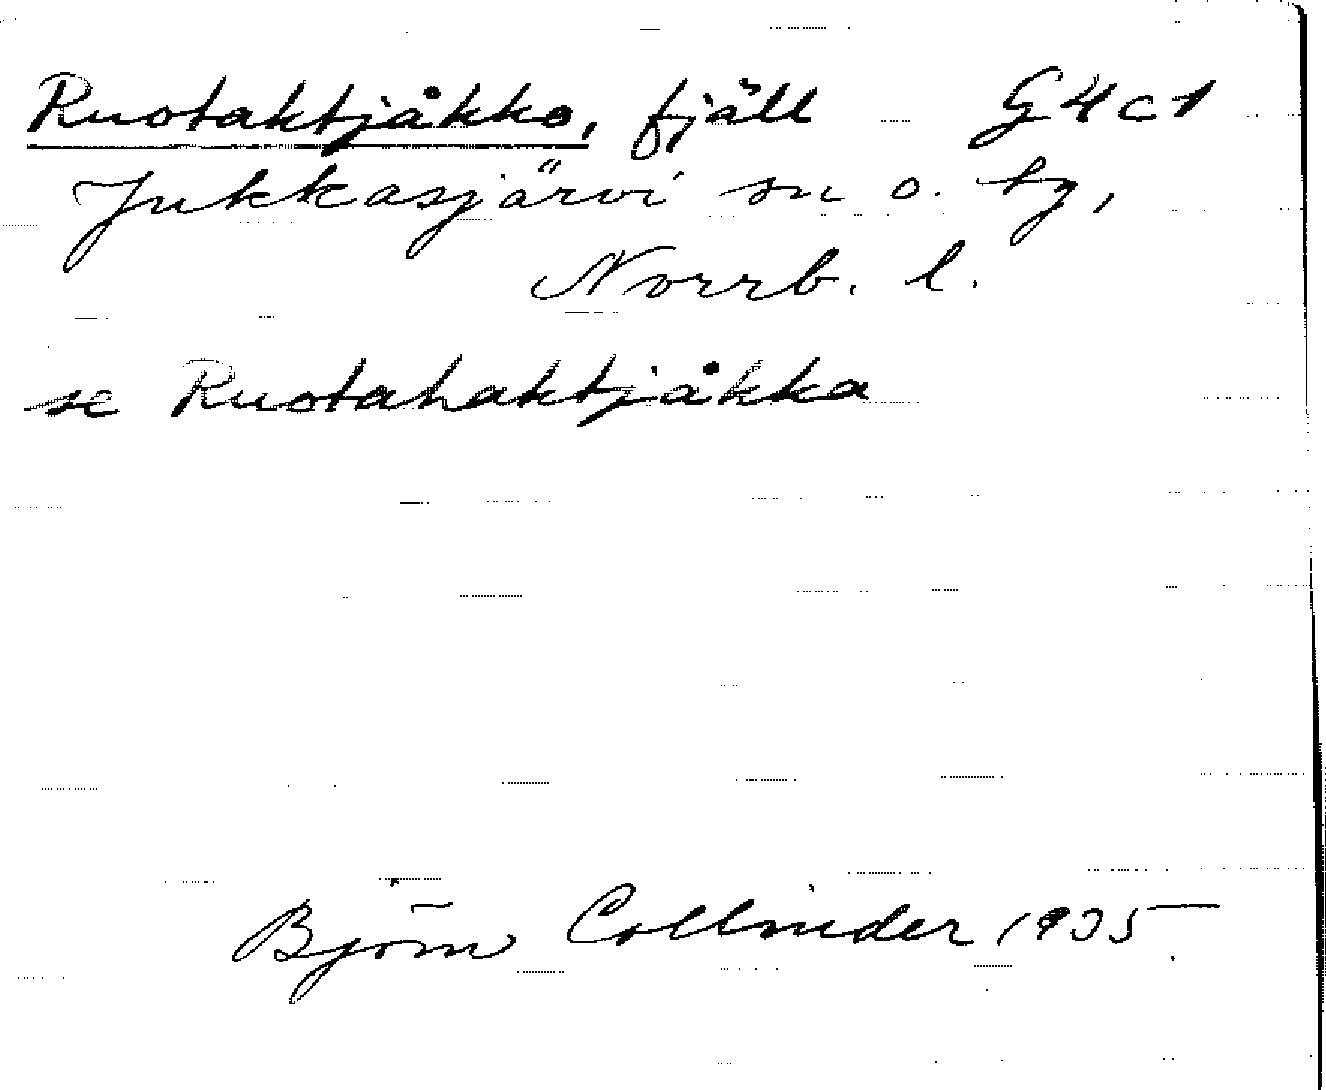 Ruotaktjåkko, fjäll G4c1
Jukkasjärvi sn o. tg,
Norrb. l.
se Ruotahaktjåkka
Björn Collinder 1935